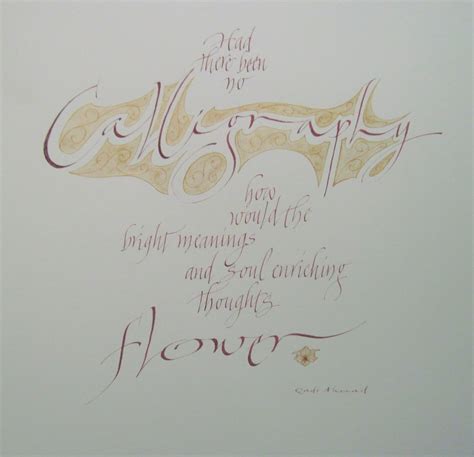 Had
there been
no
Calligraphy
how
would the
bright meanings
and soul enriching
thoughts
flower
Qadi Ahmad